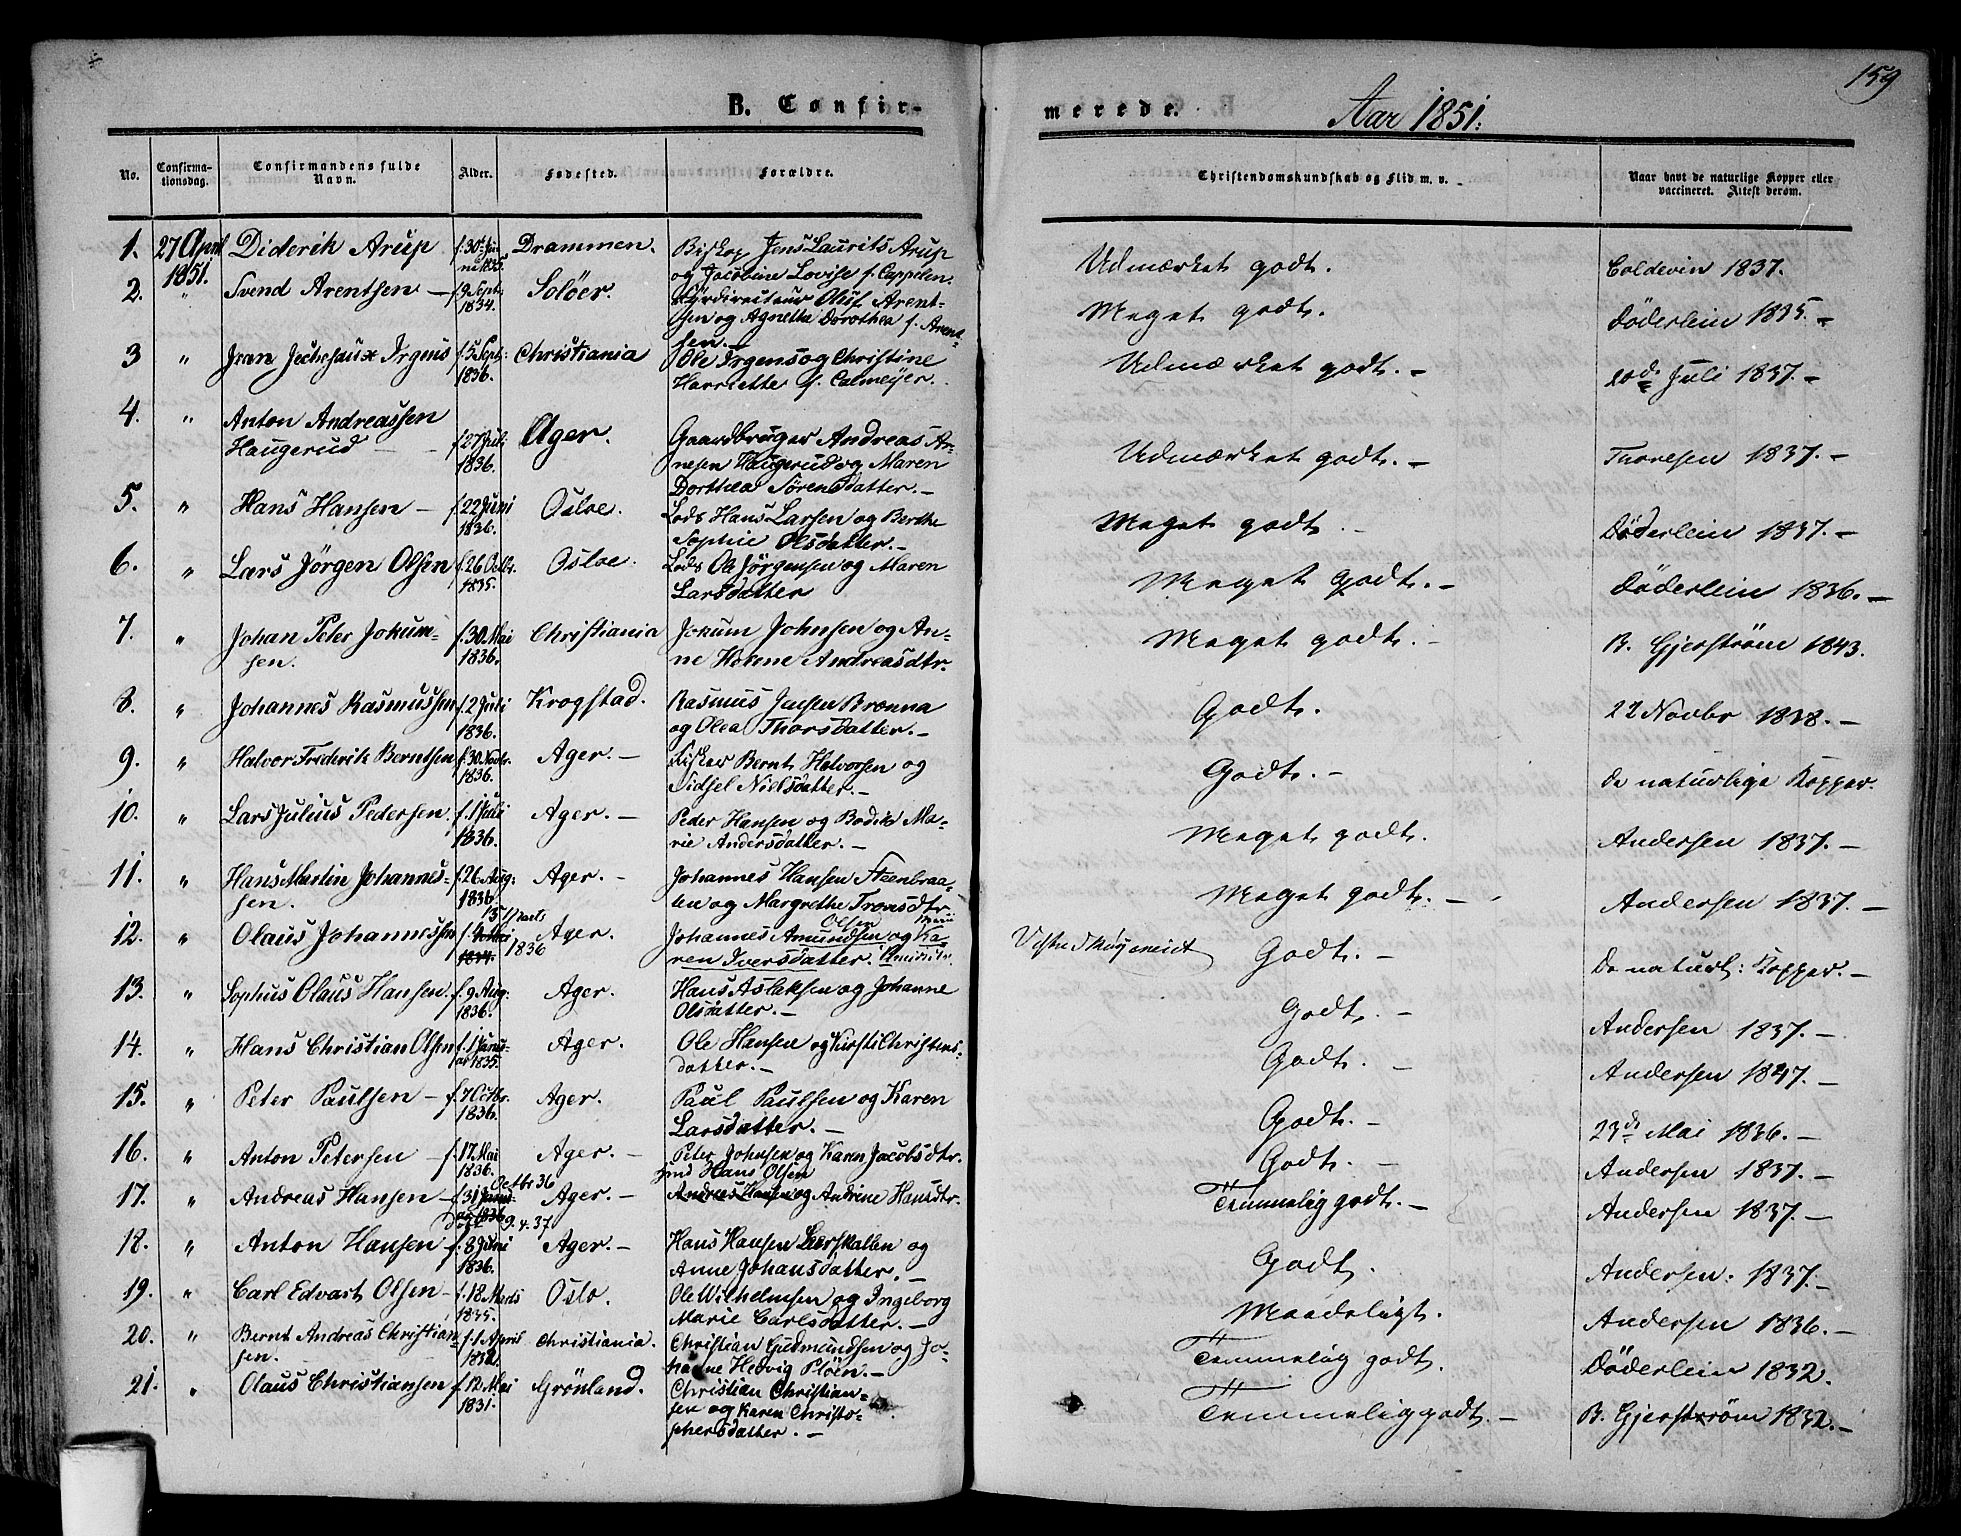 159
B. Confir-
merede.
Aar 1851.
No.
Confirma-
tionsdag.
Confirmandens fulde
Navn.
Alder.
Fødested.
Forældre.
Christendomskundskab og Flid m. v.
Naar havt de naturlige Kopper eller
vaccineret. Attest derom.
1. 27 April 1851. Diderik Arup f. 30te Juni 1835. Drammen. Biskop Jens Laurits Arup
og Jacobine Lovise f. Cappelen. Udmærket godt. Coldevin 1837.
2. " Svend Arentsen — f. 9 Sept. 1834. Soløer. Oluf Arent-
sen og Agnethe Dorothea f. Arent-
sen. — Meget godt. Döderlein 1835. —
3 " Irgens f. 5 Sept: 1836. Christiania Ole Irgens og Christine
Harriette f. Calmeyer. Udmærket godt. — Juli 1837. —
4. " Anton Andreassen
Haugerud f. 27 Jul: 1836. Ager. Gaardbruger Andreas Ar-
nesen Haugerud og Maren
Dorthea Sørensdatter. — Udmærket godt. — Thoresen 1837. —
5. " Hans Hansen — f. 22 Juni 1836. Osloe. Lods Hans Larsen og Berthe
Sophie Olsdatter. — Meget godt. Döderlein 1837. —
6. " Lars Jörgen Olsen f. 26 Octbr. 1835. Osloe. Lods Ole Jörgensen og Maren
Larsdatter Meget Godt. — Döderlein 1836. —
7. " Johan Peter Jokum-
sen. f. 30. Mai 1836. Christiania Jokum Johnsen og An-
ne Andreasdtr. Meget godt. B. Gjerström 1843.
8. " Johannes Rasmussen f. 2 Juli 1836. Krogstad. Rasmus Brønna
og Olea Thorsdatter. — Godt. 22 Novbr 1838. —
9. " Halvor Frederik Berntsen f. 30. Novbr. 1836. Ager. — Fisker Bernt Halvorsen og
Sidsel Nielsdatter. — Godt. — De naturlige Kopper.
10. " Lars Julius Pedersen. f. 1 Juli 1836. Ager. — Peder Hansen og Bodil Ma-
rie Andersdatter. — Meget godt. Andersen 1837. —
11. " Hans Martin Johannes-
sen. f. 26 Aug: 1836. Ager. — Johannes Hansen Steenbraa-
ten og Margrethe Tronsdtr Meget godt. — Andersen 1837. —
12. " Olaus Johannessen 15 Marts 1836 Ager. Johannes Amundsen og Ka-
ren Iversdatter. Olsen Godt. — De naturl: Kopper. —
13. " Sophus Olaus Hansen. f. 9 Aug: 1836. Ager. Hans Aslaksen og Johanne
Olsdatter. — Godt. — Andersen 1837. —
14. " Hans Christian Olsen f. 1 Janu-
ar 1835. Ager. Ole Hansen og Kirsti Christens-
datter. — Godt. — Andersen 1847. —
15. " Peter Paulsen — f. 7 Octbr. 1836. Ager. Paul Paulsen og Karen
Larsdatter. — Godt. — 23de Mai 1836. —
16. " Anton Petersen — f. 17. Mai 1836. Ager. — Peter Johnsen og Karen Jacobsdtr. Godt. — Andersen 1837. —
17. " Andreas Hansen — f. 31 Octbr 36 Ager. — Hans Olsen
Andreas Hansen og Andrine Hansdtr. Temmelig godt. — Andersen 1837. —
9. 4. 37
18. " Anton Hansen f. 8 Juni 1836. Ager. — Hans Hansen og
Anne Johansdatter. — Godt. Andersen. 1837. —
19. " Carl Edvart Olsen — f. 18 Marts 1835. Oslo. Ole Wilhelmsen og Ingeborg
Marie Carlsdatter. — Maadeligt. Andersen 1836. —
20. " Bernt Andreas Christian-
sen. f. 1 April Christiania. Christian Gudmundsen og Jo-
hanne Hedvig Pløen. — Temmelig godt. Döderlein 1832.
21. " Olaus Christiansen f. 12. Mai 1831. Grönland. Christian Christian-
sen og Karen Christo-
phersdatter. — Temmelig godt. — B. Gjerström 1832. —